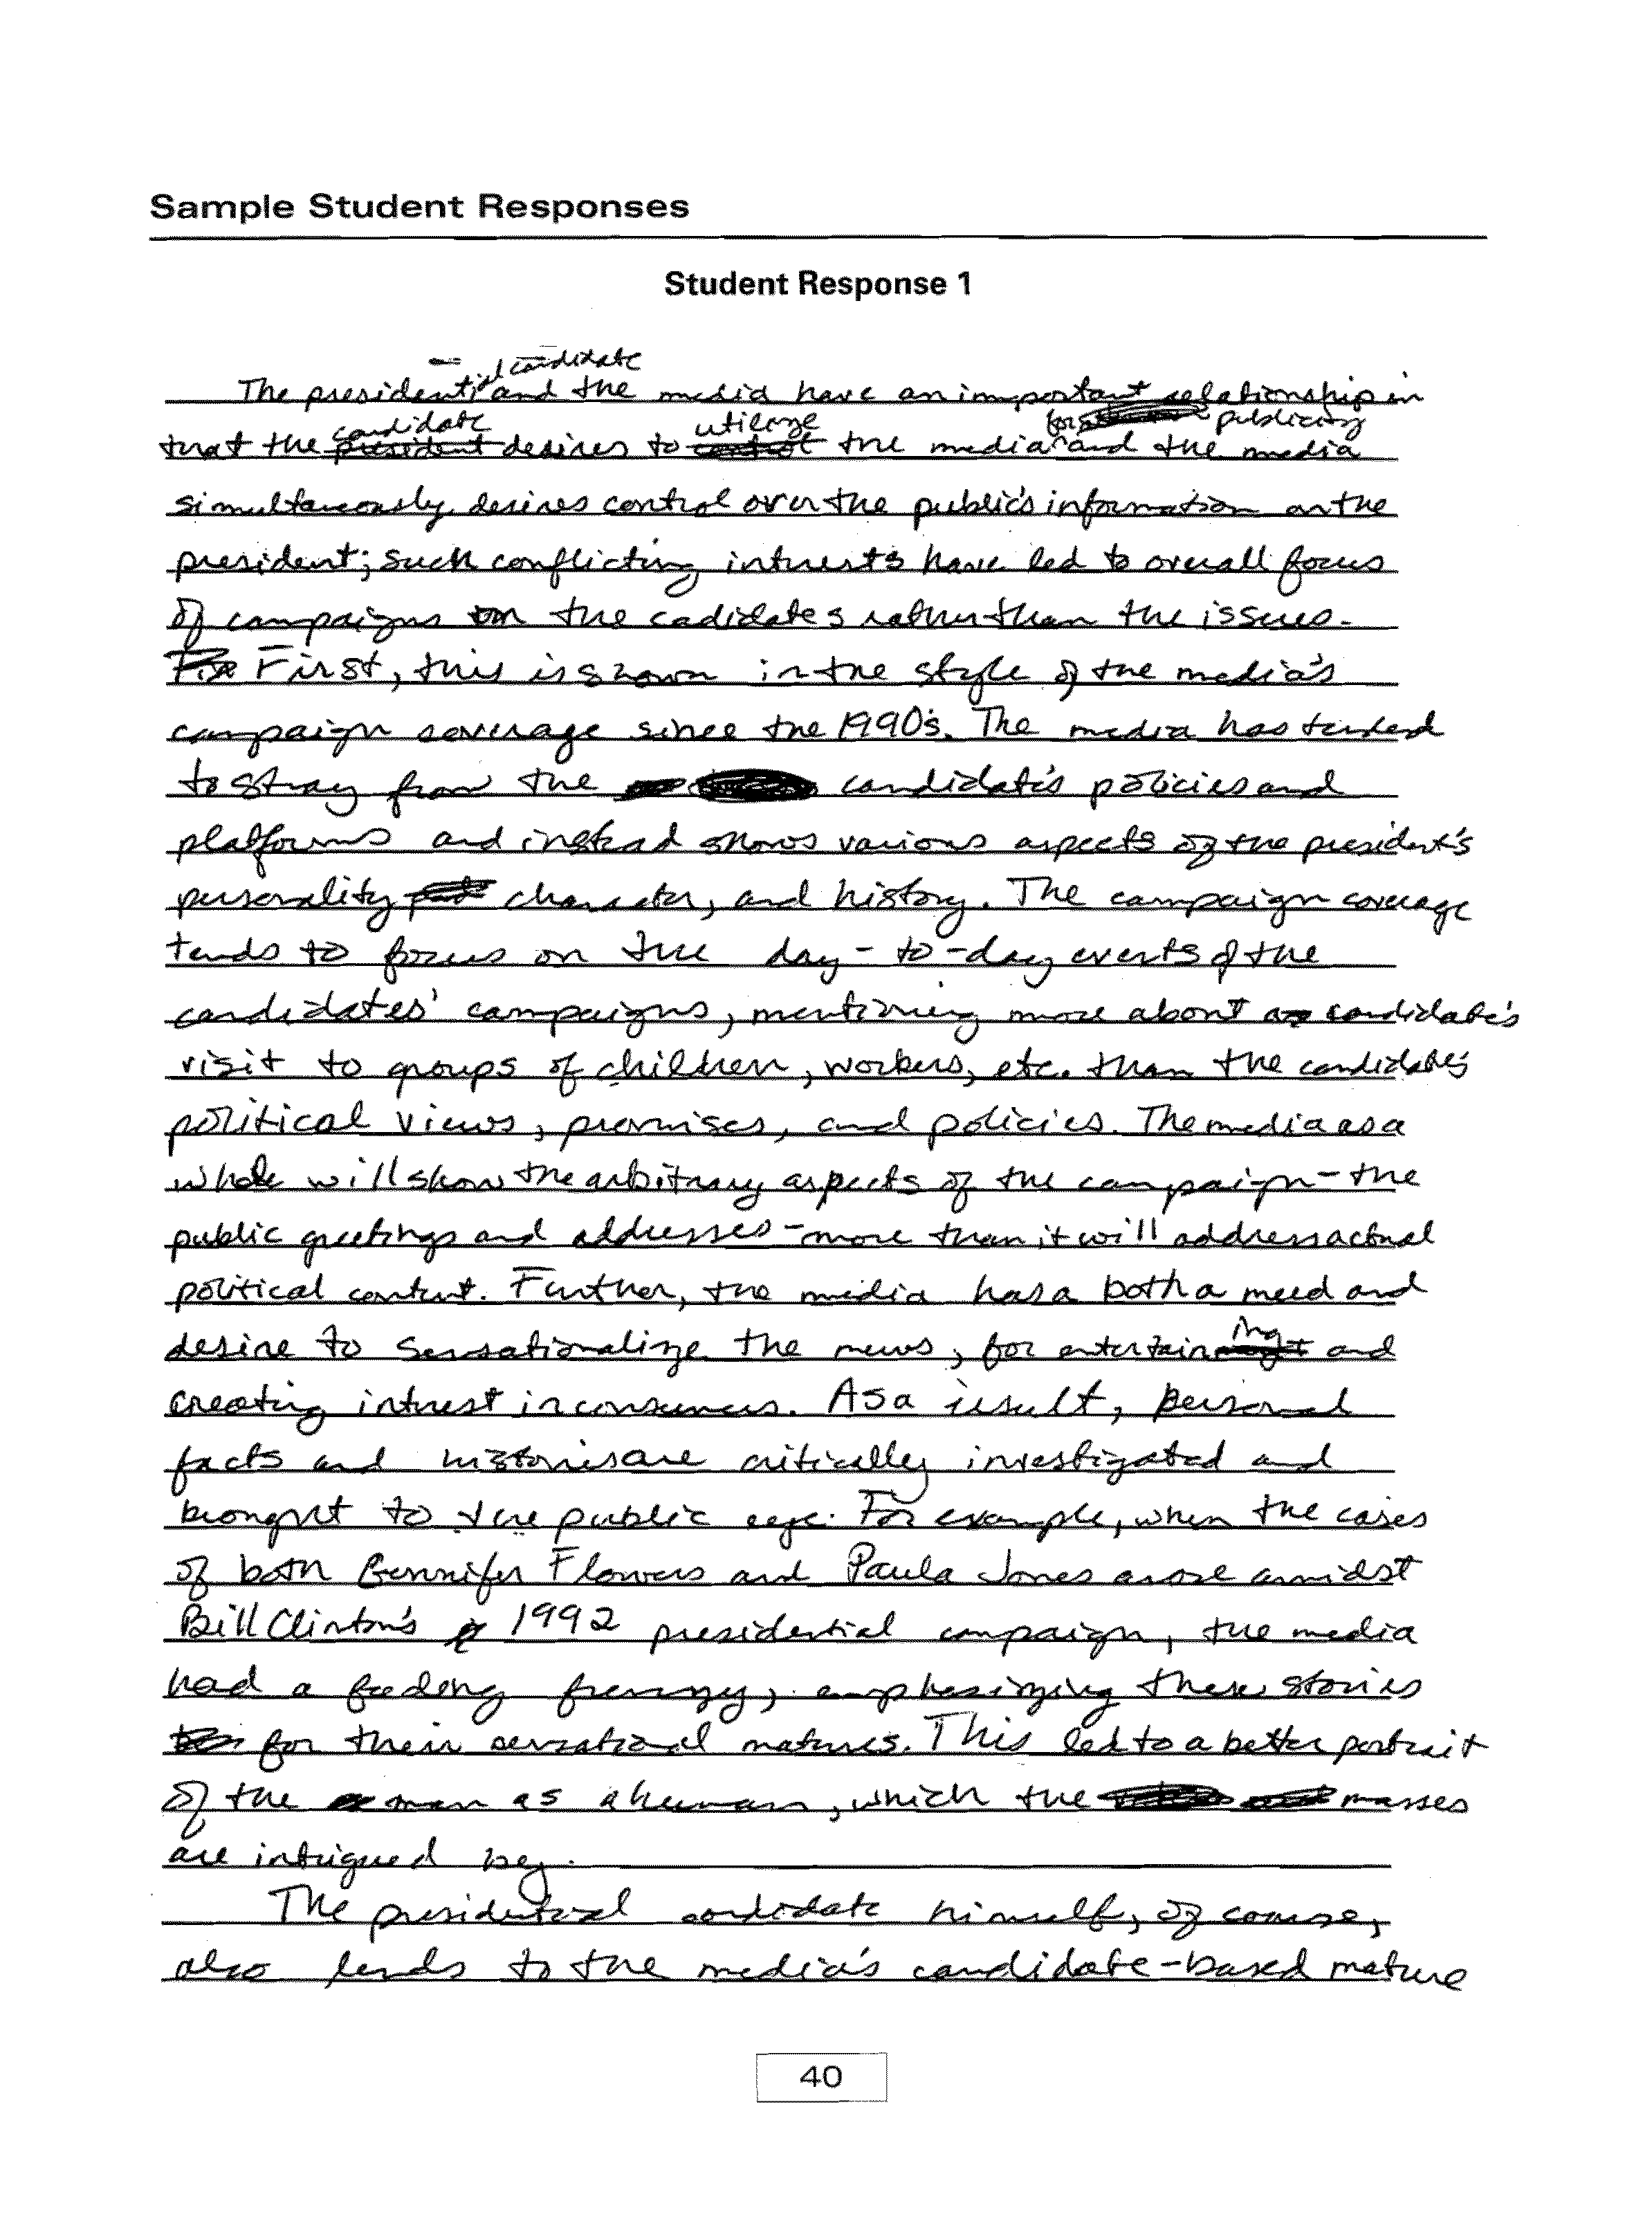 Sample Student Responses
Student Response 1
The presidential candidate and the media have an important relationship in
that the candidate desires to utilize the media for publicity and the media
simultaneously desires control over the public's information on the
president; such conflicting interests have led to overall focus
of campaigns on the cadidates rather than the issues.
First, this is shown in the style of the media's
campaign coverage since the 1990's. The media has tended
to stray from the candidate's policies and
platforms and instead shows various aspects of the president's
personality character, and history. The campaign coverage
tends to focus on the day-to-day events of the
candidates' campaigns, mentioning more about a candidate's
visit to groups of children, workers, etc. than the candidate's
political views, promises, and policies. The media as a
whole will show the arbitrary aspects of the campaign - the
public greetings and addresses - more than it will address actual
political content. Further, the media has a both a need and
desire to sensationalize the news, for entertaining and
creating interest in consumers. As a result, personal
facts and histories are critically investigated and
brought to the public eye. For example, when the cases
of both Gennifer Flowers and Paula Jones arose amidst
Bill Clinton's 1992 presidential campaign, the media
had a feeding frenzy, emphasizing these stories
for their sensational natures. This led to a better portrait
of the man as a human, which the masses
are intrigued by.
The presidential candidate himself, of course,
also lends to the media's candidate-based nature
40